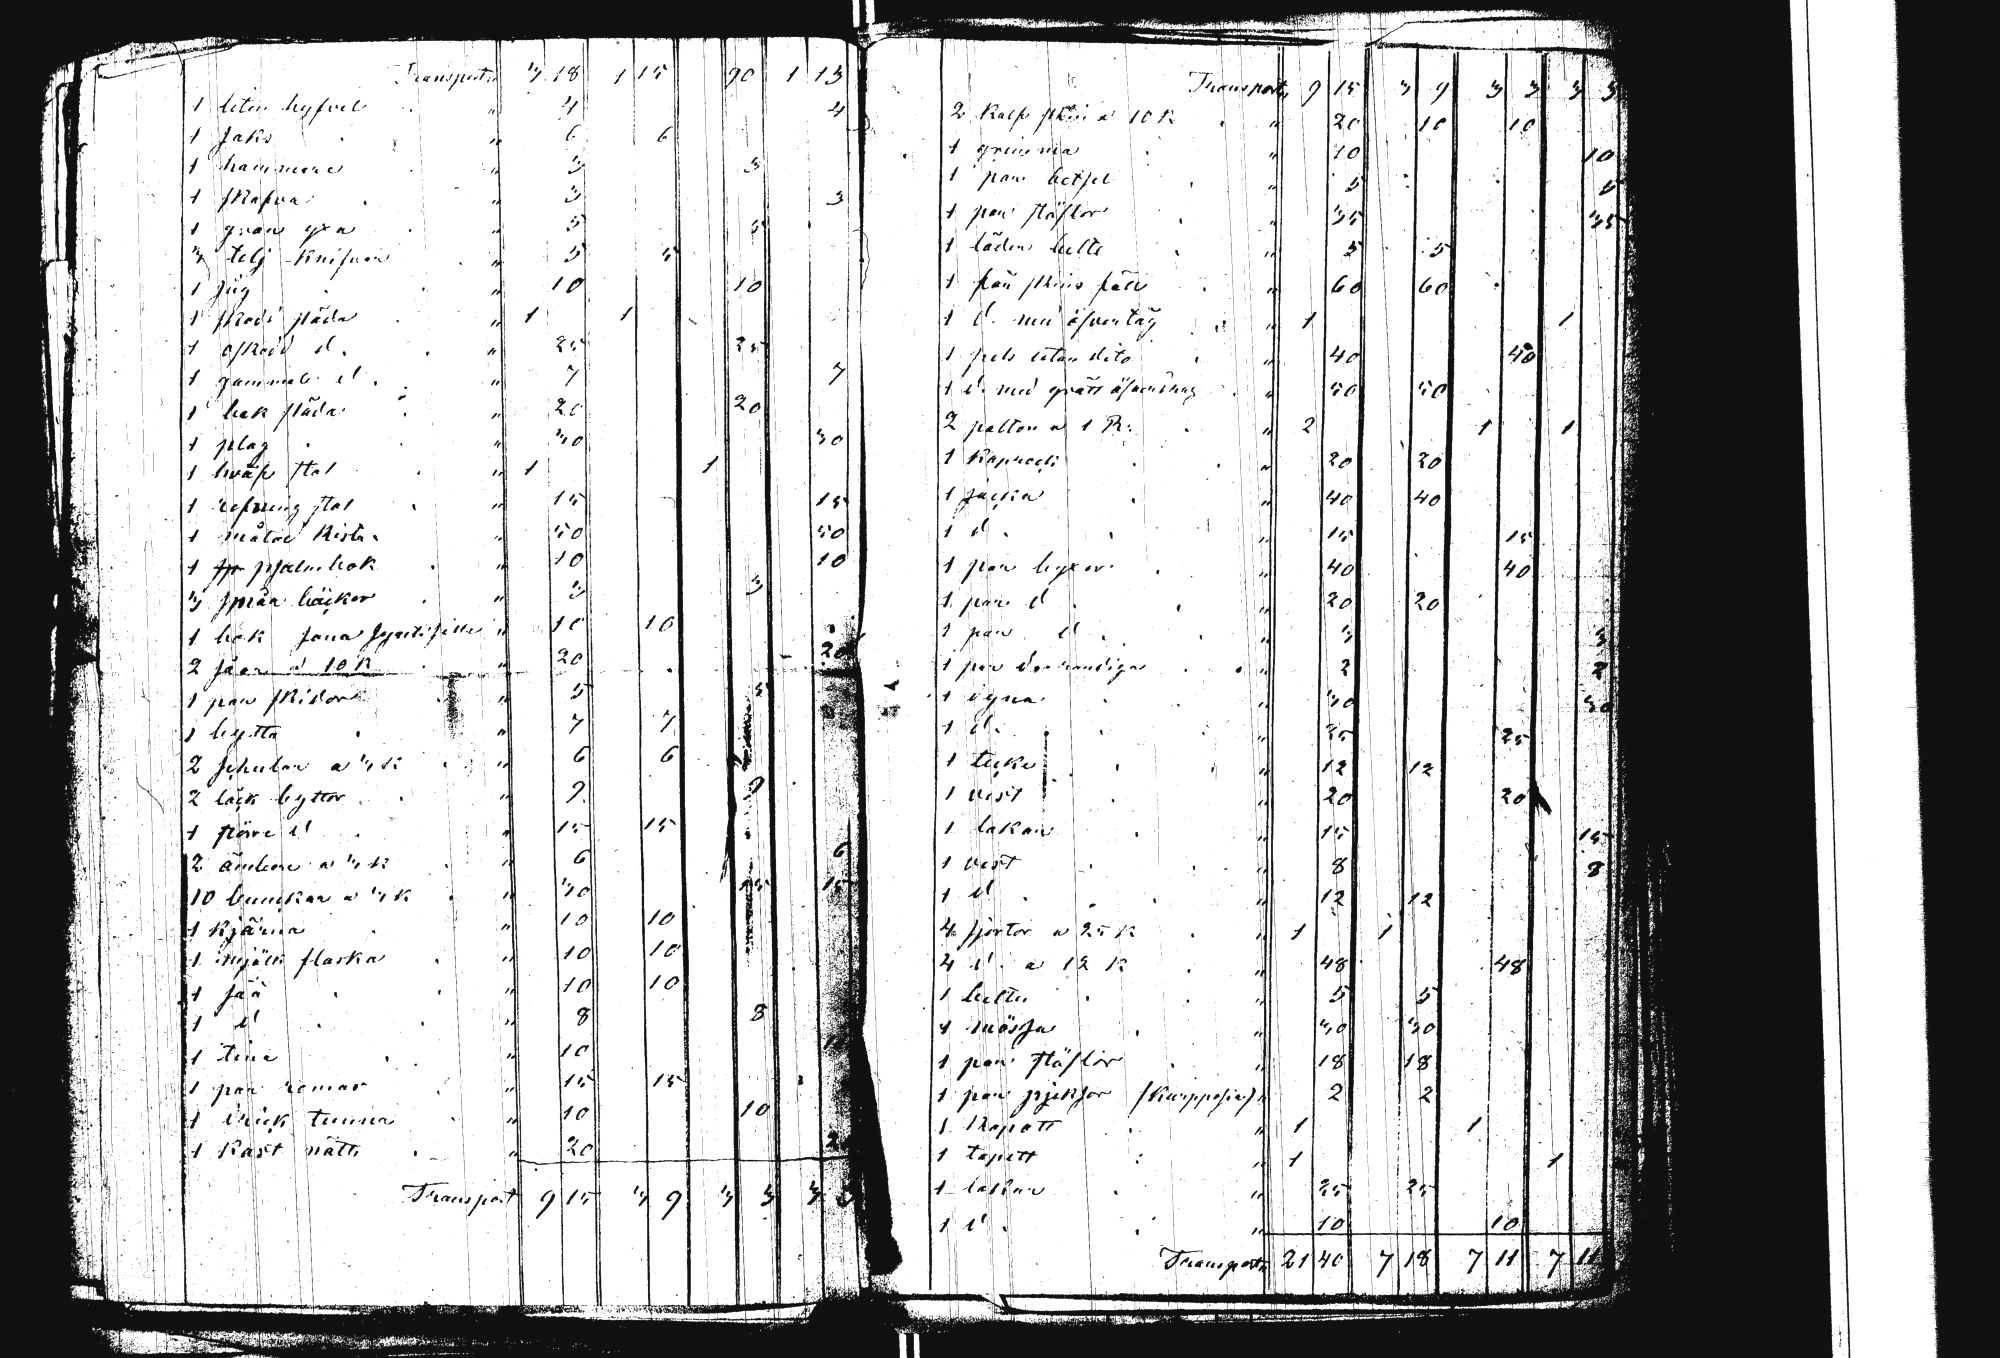 Transport 3 18 1 15 90 1 13
1 liten hyfvel " 4 4
1 saks " 6 6
1 hammare " 3 3
1 skafva " 3 3
1 gran yxa " 5 5
3 telj knifvar " 5 5
1 " 10 10
1 skodd släda " 1 1
1 oskodd d. " 25 25
1 gammal d. " 7 7
1 bak släda " 20 20
1 plog " 30 30
1 stol " 1 1
1 stol " 15 15
1 målad kista " 50 50
1 psalmbok " 10 10
3 små böcker " 3 3
1 bok " 10 10
2 såar a 10 K " 20 20
1 par skidor " 5 5
1 bytta " 7 7
2 a 3 K " 6 6
2 läck byttor " 9 9
1 större d " 15 15
2 ämbare a 3 K " 6 6
10 bunckar a 3 K " 30 15 15
1 kjärna " 10 10
1 mjölk flaska " 10 10
1 såå " 10 10
1 d " 8 8
1 tina " 10 10
1 par remar " 15 15
1 drick tunna " 10 10
1 kast nätt " 20 20
Transport 9 15 3 9 3 3 3 3
Transport 9 15 3 9 3 3 3 3
2 kalf skin a 10 K " 20 10 10
1 grimma " 10 10
1 par betsel " 5 5
1 par stöflor " 35 35
1 läder bälte " 5 5
1 får skins fäll " 60 60
1 d. med öfvertåg " 1 1
1 pels utan dito " 40 40
1 d. med grått öfvertåg " 50 50
2 paltor a 1 R. " 2 1 1
1 kaprock " 20 20
1 jacka " 40 40
1 d. " 15 15
1 par byxor " 40 40
1 par d. " 20 20
1 par d. " 3 3
1 par " 2 2
1 " 30 30
1 d. " 25 25
1 täcke " 12 12
1 vest " 20 20
1 lakan " 15 15
1 vest " 8 8
1 d. " 12 12
4 sjortor a 25 K " 1 1
4 d. a 12 K " 48 48
1 bälte " 5 5
1 mössa " 30 30
1 par stöflor " 18 18
1 par pjeksor " 2 2
1 kapott " 1 1
1 tapett " 1 1
1 lakan " 25 25
1 d. " 10 10
Transport 21 40 7 18 7 11 7 11